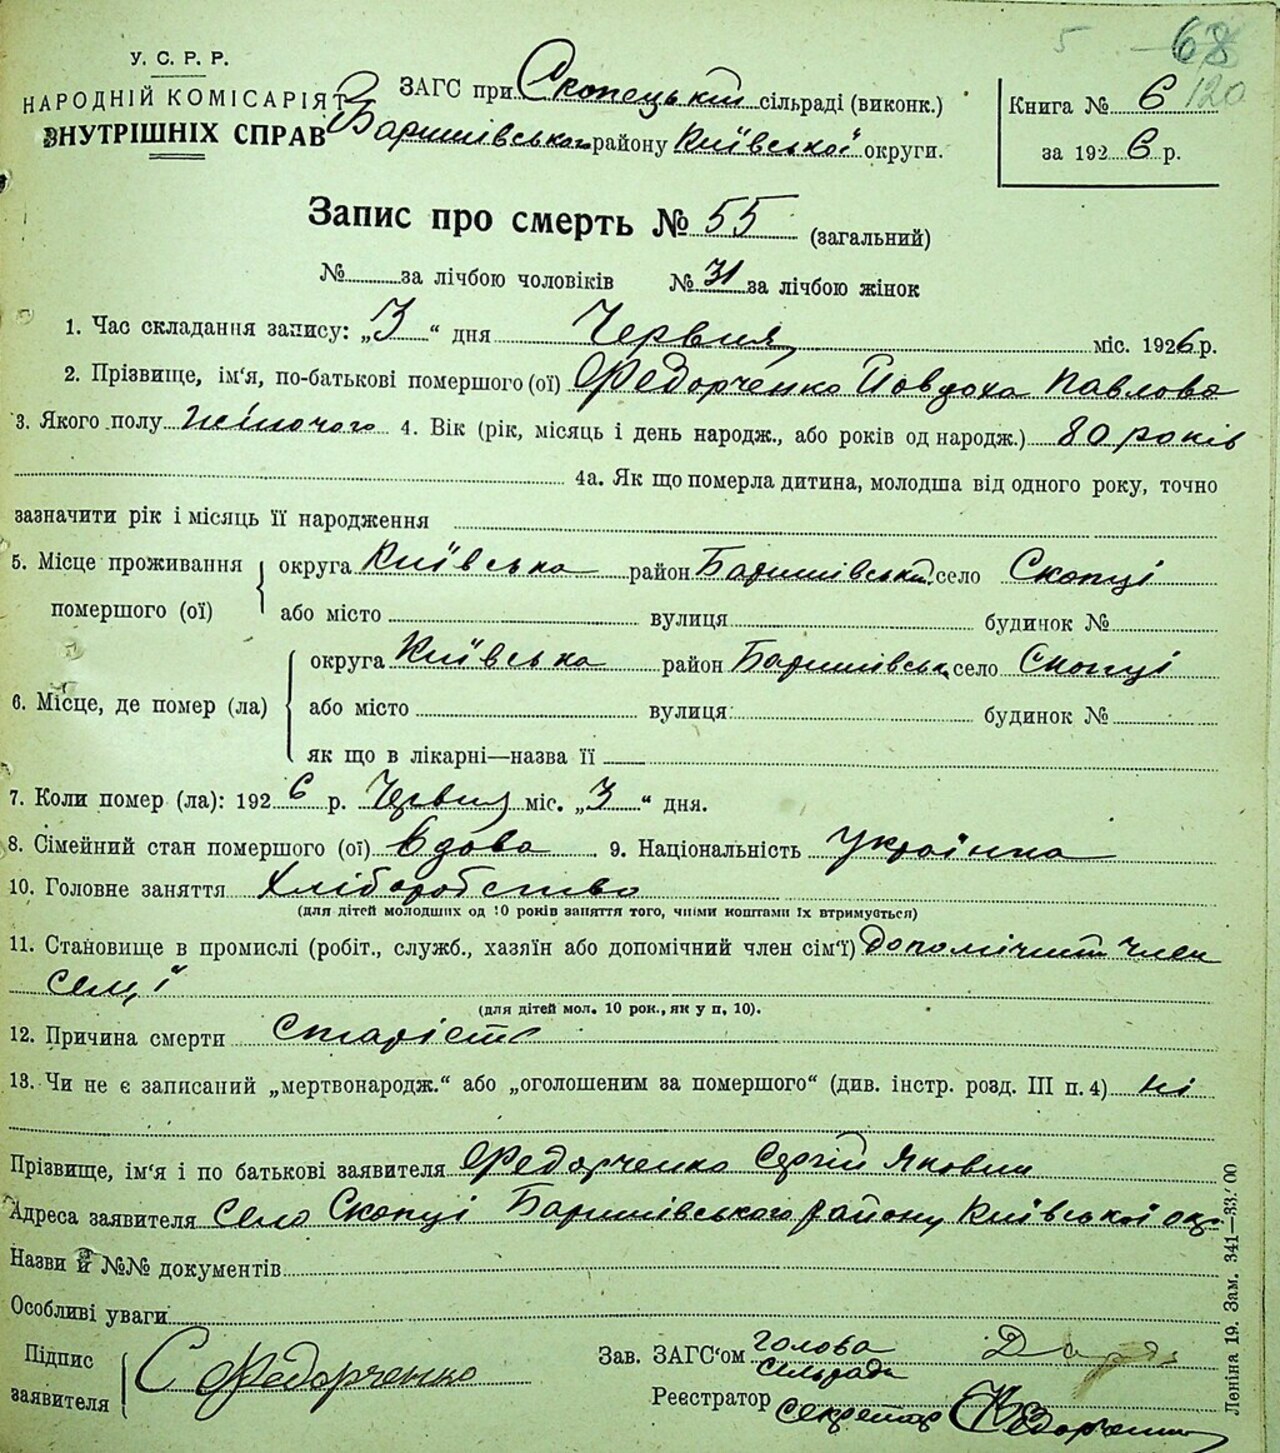 5 68
120
У. С. Р. Р.
НАРОДНІЙ КОМІСАРІЯТ
ВНУТРІШНІХ СПРАВ
ЗАГС при Скопецькій сільраді (виконк.)
Баришівського району Київської округи.
Книга № 6
за 1926 р.
Запис про смерть № 55 (загальний)
№ за лічбою чоловіків № 31 за лічбою жінок
1. Час складання запису: „3“ дня Червня міс. 1926 р.
2. Прізвище, ім‘я, по-батькові помершого (ої) Федорченко Йовдоха Павлова
3. Якого полу жіночого 4. Вік (рік, місяць і день народж., або років од народж.) 80 років
4а. Як що померла дитина, молодша від одного року, точно
зазначити рік і місяць її народження
5. Місце проживання помершого (ої) округа Київська район Баришівський село Скопці
або місто вулиця будинок №
6. Місце, де помер (ла) округа Київська район Баришівськ. село Скопці
або місто вулиця будинок №
як що в лікарні—назва її
7. Коли помер (ла): 1926 р. Червня міс. „3“ дня.
8. Сімейний стан помершого (ої) Вдова 9. Національність Українка
10. Головне заняття Хліборобство
(для дітей молодших од 10 років заняття того, чиїми коштами їх втримується)
11. Становище в промислі (робіт., служб., хазяїн або допомічний член сім‘ї) допомічний член
семʼї
(для дітей мол. 10 рок., як у п. 10).
12. Причина смерти Старість
13. Чи не є записаний „мертвонародж.“ або „оголошеним за помершого“ (див. інстр. розд. III п. 4) ні
Прізвище, ім‘я і по батькові заявителя Федорченко Сергій Якович
Адреса заявителя Село Скопці Баришівського району Київської окр.
Назви й №№ документів
Особливі уваги
Підпис заявителя С Федорченко
Зав. ЗАГС‘ом голова сільради
Реєстратор секретар Федорченко
Леніна 19. Зам. 341—33.